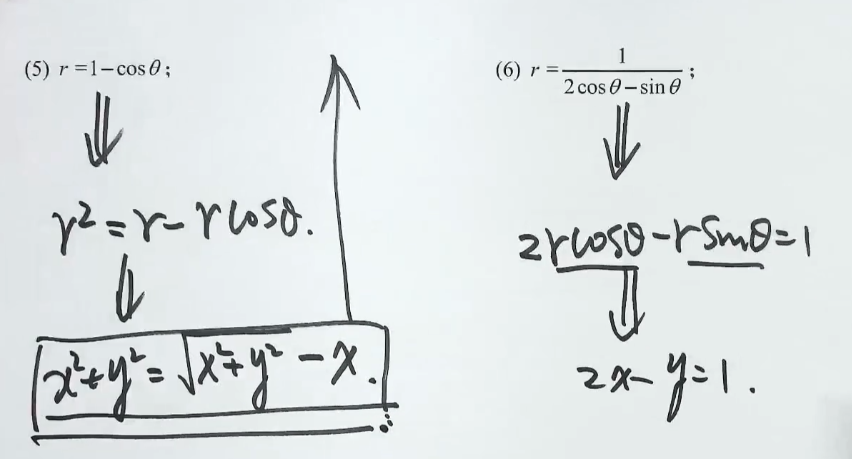 (5) r = 1 − cos θ ;
r² = r − r cos θ.
x² + y² = √(x² + y²) − x.
(6) r = 1 / (2 cos θ − sin θ) ;
2r cos θ − r sin θ = 1
2x − y = 1.